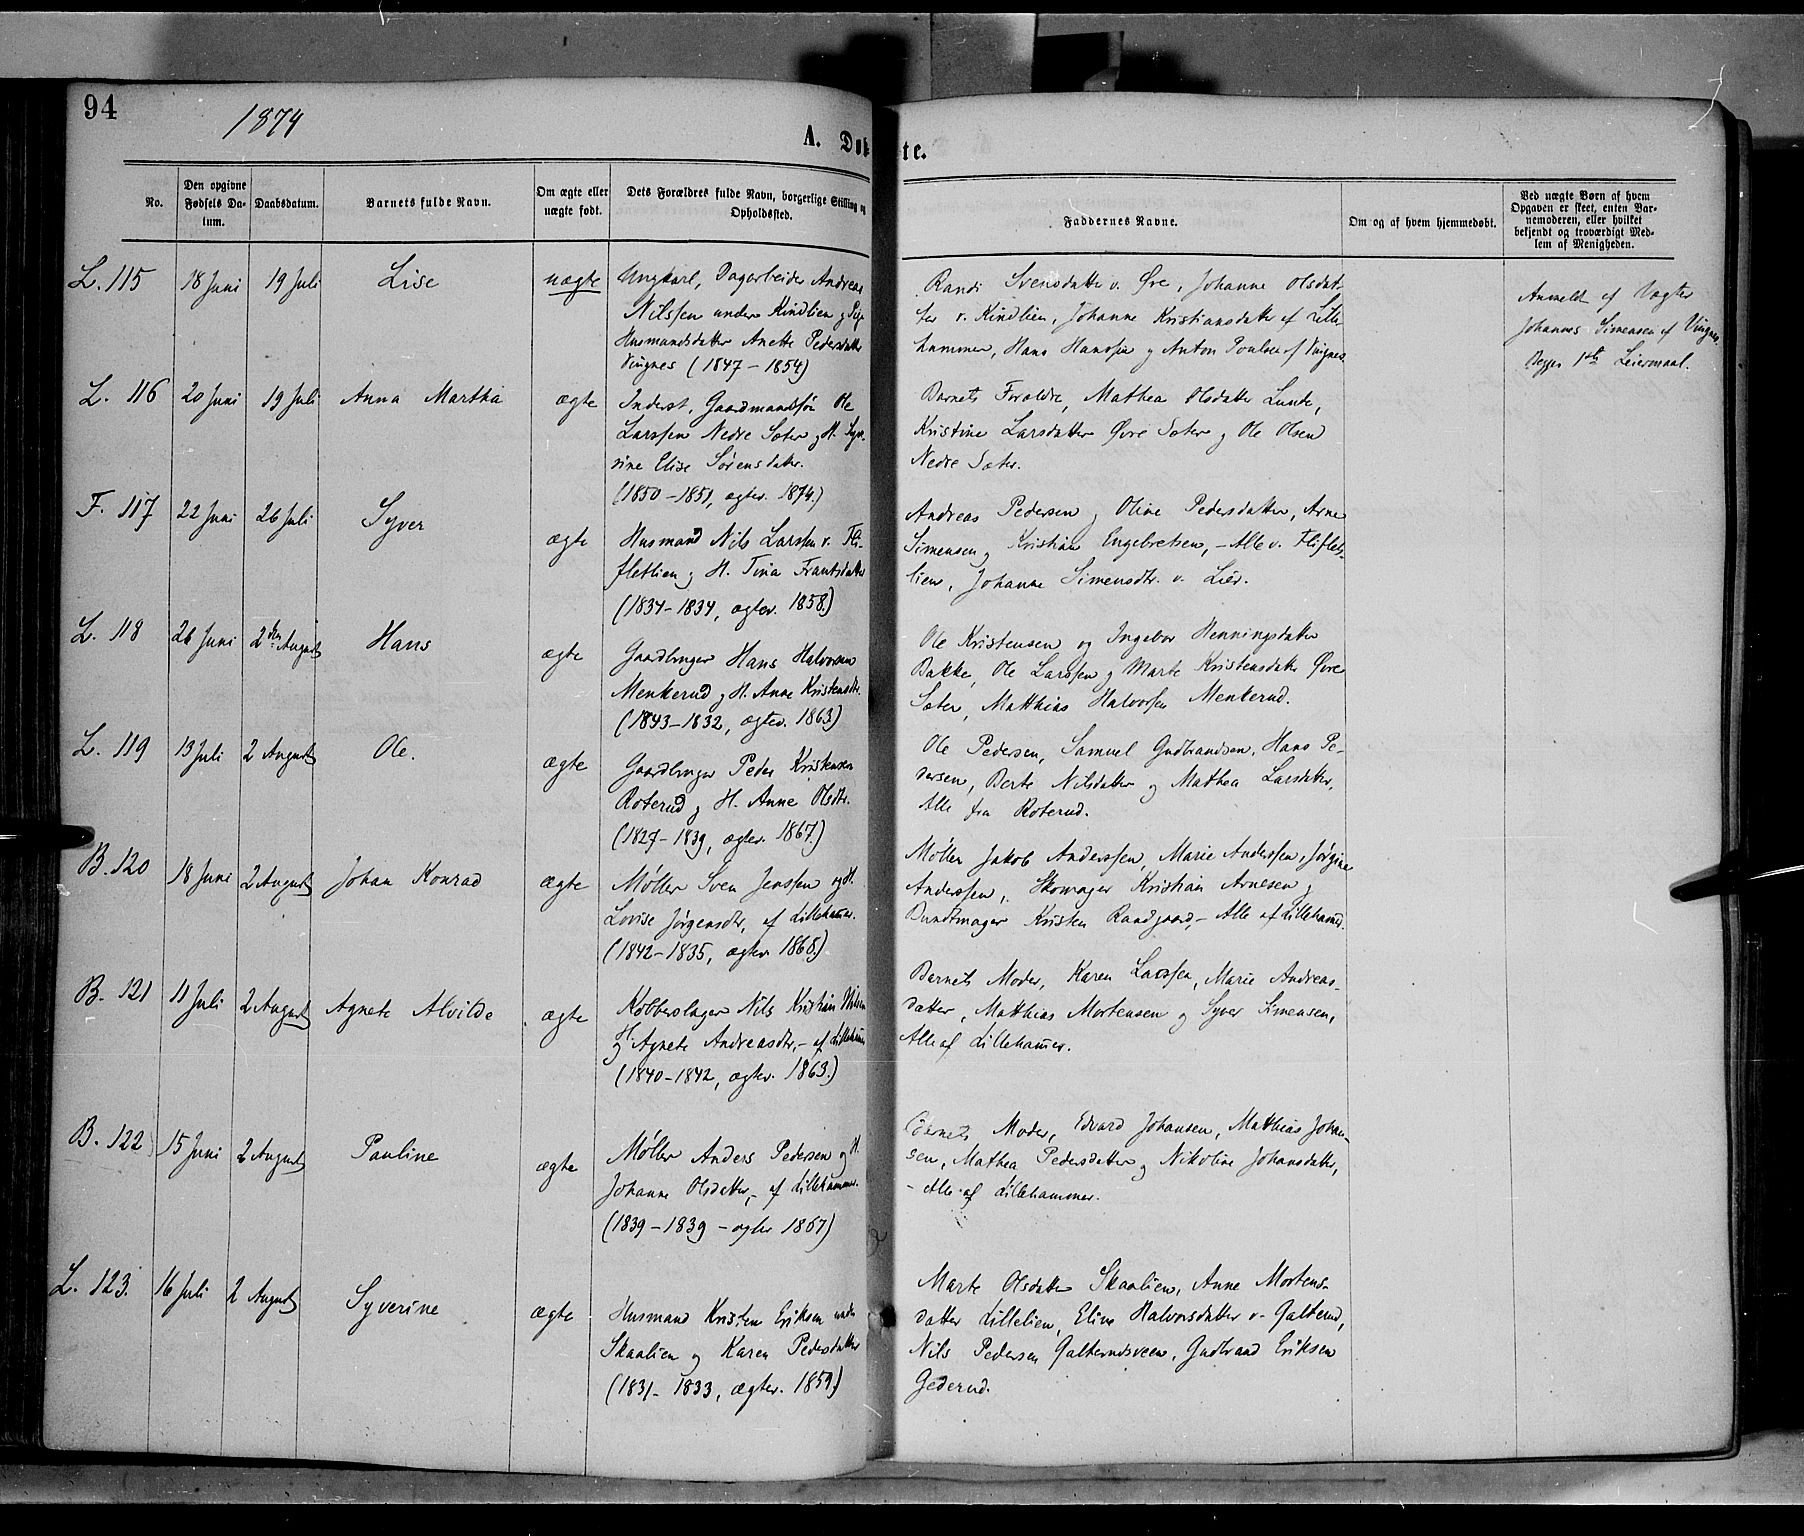 94
1874
A. Døbte.
No.
Den opgivne Fødsels Datum.
Daabsdatum.
Barnets fulde Navn.
Om ægte eller uægte født.
Dets Forældres fulde Navn, borgerlige Stilling og Opholdssted.
Faddernes Navne.
Om og af hvem hjemmedøbt.
Ved uægte Børn af hvem Opgaven er skeet, enten Barnemoderen, eller hvilket bekjendt og troværdigt Medlem af Menigheden.
L. 115 18 Juni 19 Juli Lise uægte
Ungkarl, Dagarbeider Andreas
Nilssen under Kindlien og Pige
Husmandsdatter Anette Pedersdatter
Vingnes (1847-1854)
Randi Svensdatter v. Øre, Johanne Olsdat-
ter v. Kindlien, Johanne Kristiansdatter af Lille-
hammer, Hans Hanssen og Anton Poulsen af Vingnes
Anmeldt af Vægter
Johannes Simensen af Vingnes.
Begges 1ste Leiermaal.
L. 116 20 Juni 19 Juli Anna Martha ægte
Inderst, Gaardmandssøn Ole
Larssen Nedre Sæter og H. Syve-
rine Elise Sørensdatter.
(1850-1851, ægtev. 1874.)
Barnets Forældre, Mathea Olsdatter Lunde,
Kristine Larsdatter Øvre Sæter og Ole Olsen
Nedre Sæter.
F. 117 22 Juni 26 Juli Syver ægte
Husmand Nils Larssen v. Fli-
fletlien og H. Tina Frantsdatter
(1834-1834, ægtev. 1858.)
Andreas Pedersen og Oline Pedersdatter, Arne
Simensen og Kristian Engebretsen, - Alle v. Fliflet-
lien, Johanne Simensdtr. v. Lier.
L. 118 26 Juni 2den August Hans ægte
Gaardbruger Hans Halvorsen
Menkerud og H. Anne Kristensdtr.
(1843-1832, ægtev. 1863)
Ole Kristensen og Ingebor Henningsdatter
Bakke, Ole Larssen og Marte Kristensdatter Øvre
Sæter, Matthias Halvorsen Menkerud.
L. 119 13 Juli 2 August Ole. ægte
Gaardbruger Peder Kristensen
Roterud og H. Anne Olsdtr.
(1827-1839, ægtev. 1867.)
Ole Pedersen, Samuel Gudbrandsen, Hans Pe-
dersen, Berte Nilsdatter og Mathea Larsdatter,
Alle fra Roterud.
B. 120 18 Juni 2 August Johan Konrad ægte
Møller Sven Jenssen og H.
Lovise Jørgensdtr, af Lillehamer.
(1842-1835, ægtev. 1868.)
Møller Jakob Anderssen, Marie Anderssen, Jørgine
Anderssen, Skomager Kristian Arnesen og
Bundtmager Kristen Randgaard, - Alle af Lillehamer.
B. 121 11 Juli 2 August Agnete Alvilde ægte
Kobberslager Nils Kristian Nilsen
og H. Agnete Andreasdtr, - af Lillehamer
(1840-1842, ægtev. 1863.)
Barnets Moder, Karen Larssen, Marie Andreas-
datter, Matthias Mortensen og Syver Simensen,
Alle af Lillehamer.
B. 122 15 Juni 2 August Pauline ægte
Møller Anders Pedersen og H.
Johanne Olsdatter, - af Lillehammer.
(1839-1839 - ægtev 1867)
Barnets Moder, Edvard Johansen, Matthias Johan-
sen, Mathea Pedersdatter og Nikoline Johansdatter,
- Alle af Lillehammer.
L. 123. 16 Juli 2 August Syverine ægte
Husmand Kristen Eriksen under
Skaalien og Karen Pedersdatter
(1831-1833, ægtev. 1859.)
Marte Olsdatter Skaalien, Anne Mortens-
datter Lillelien, Eline Halvorsdatter v. Galterud,
Nils Pedersen Galterudsveen, Gudbrand Eriksen
Gederud.